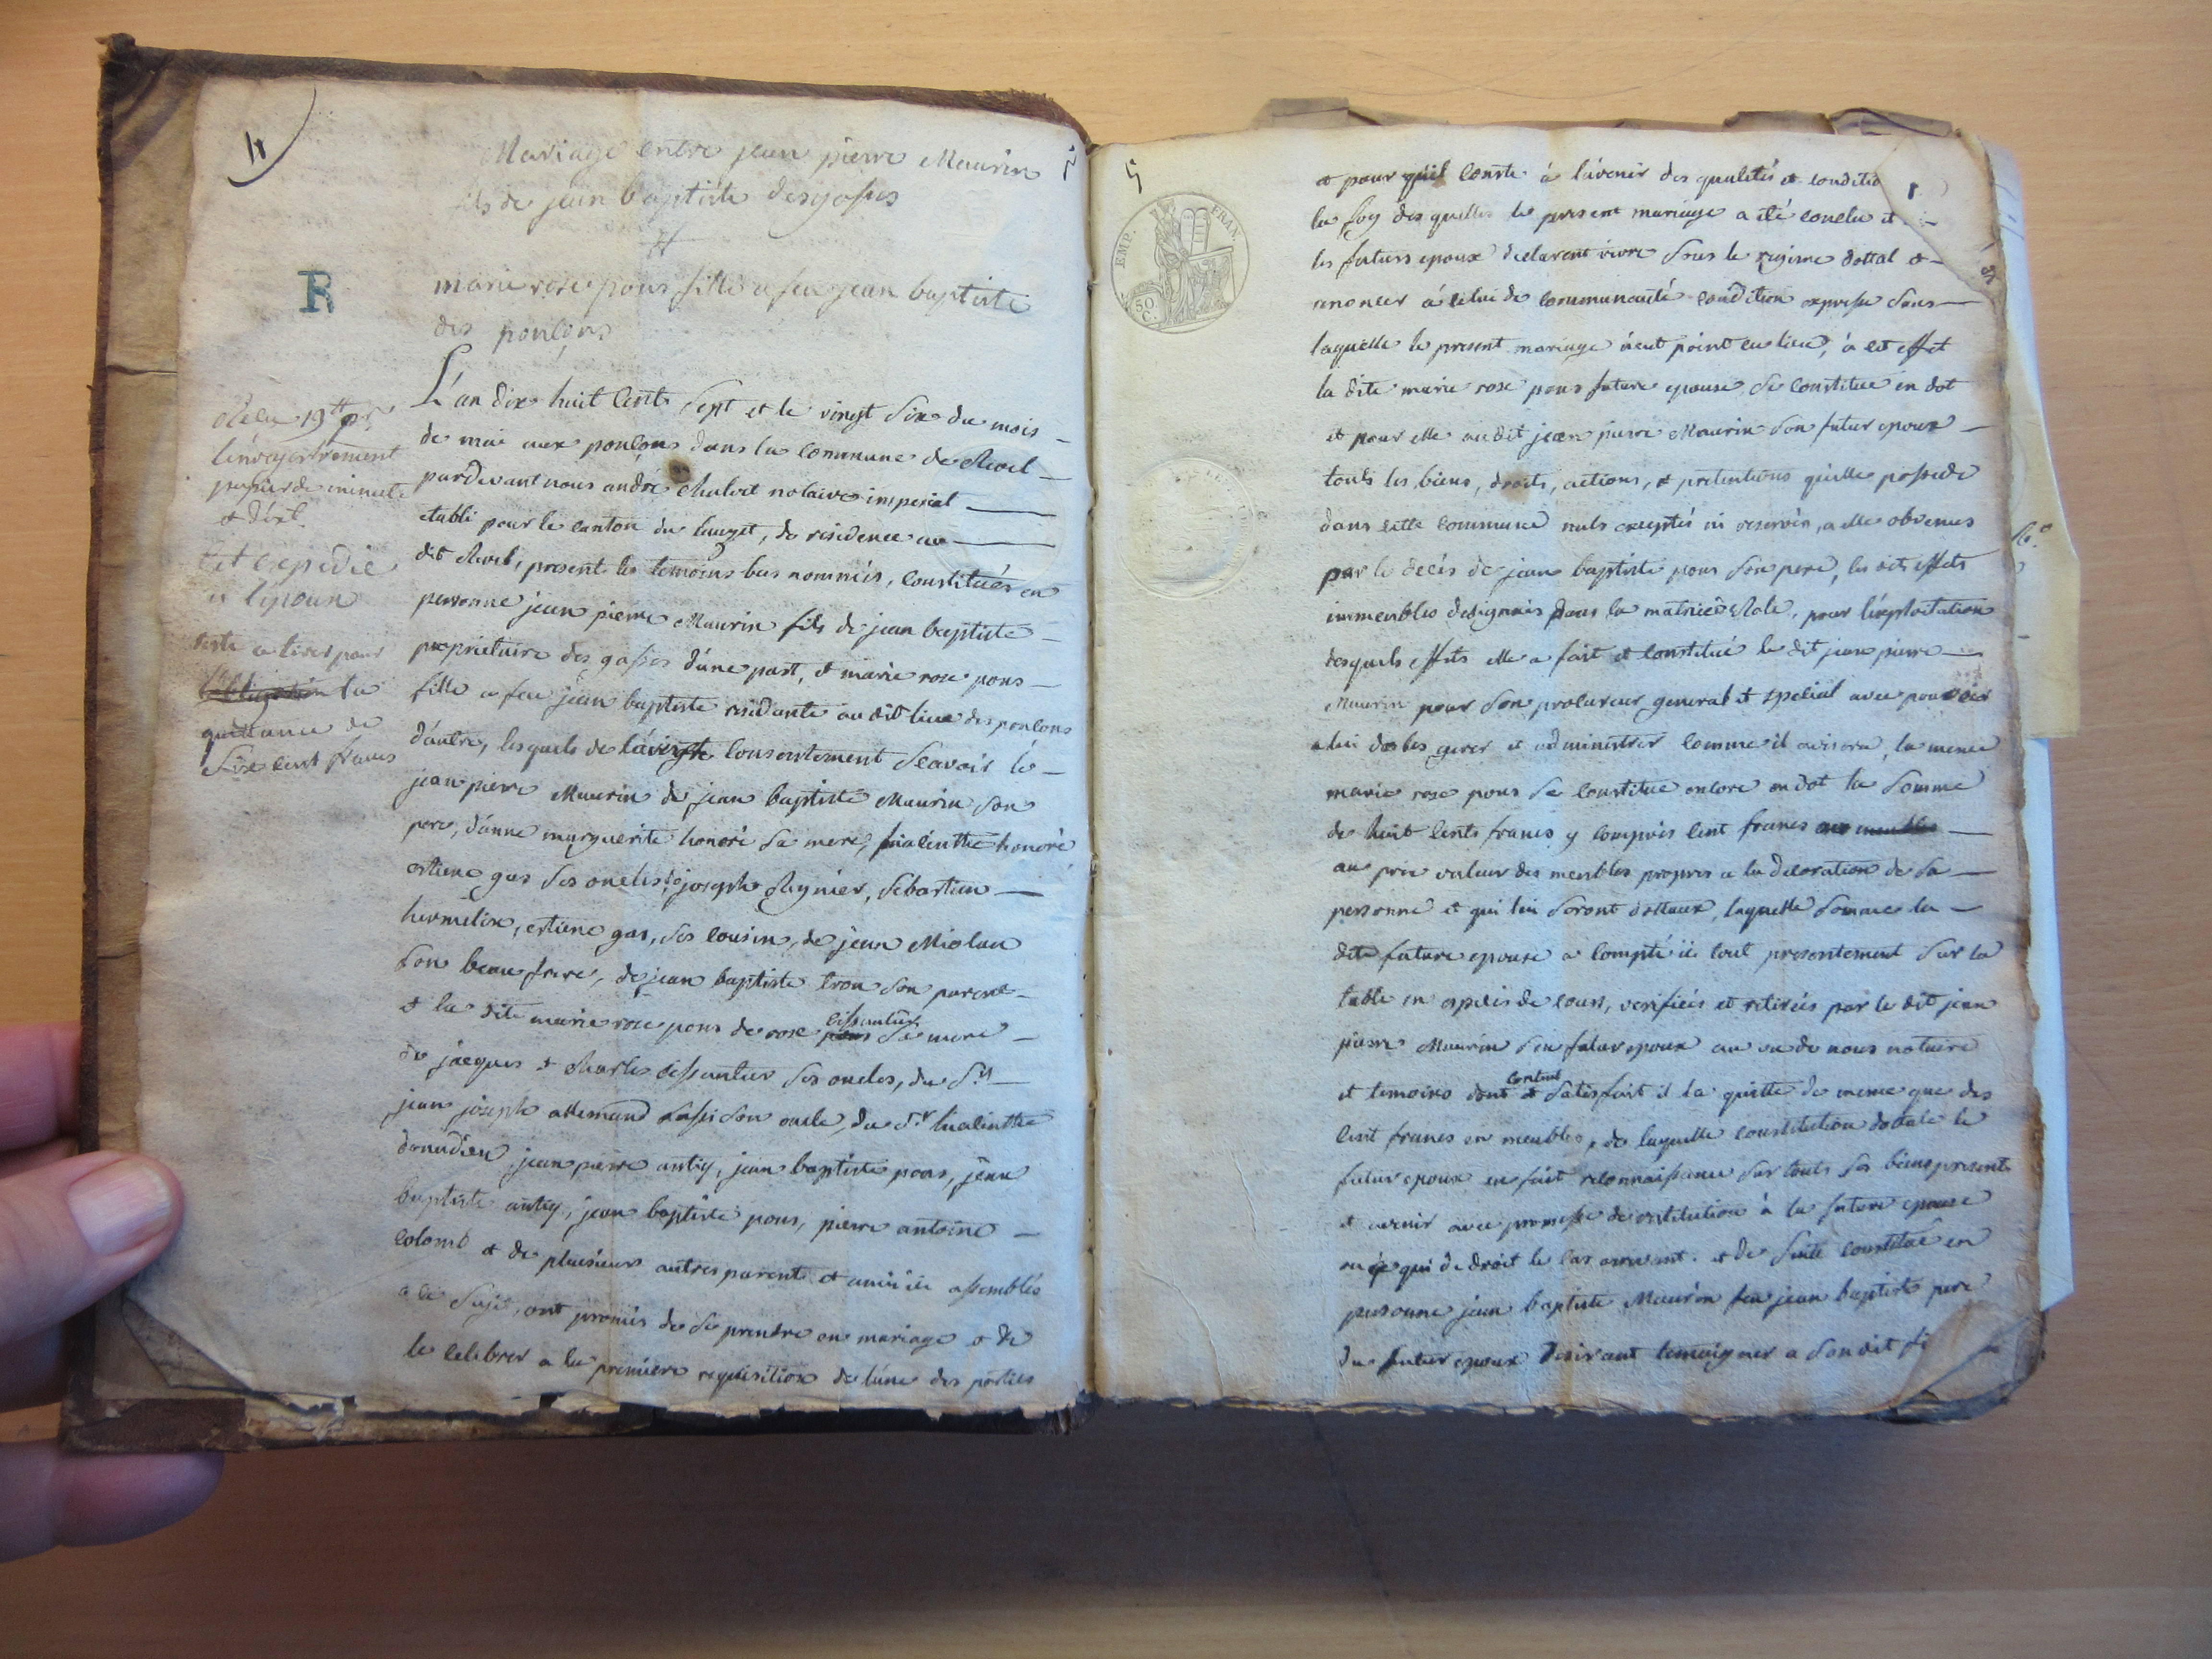 4
Mariage entre jean pierre Maurin
fils de jean baptiste desgasses
et
marie rose pons fille a feu jean baptiste
des ponlons
R
L'an dix huit cent sept et le vingt six du mois
de mai aux ponlons dans la commune de Revel
pardevant nous andré chabot notaire imperial
etabli pour le canton du lauzet, de residence au
dit Revel, present les temoins bas nommés, constitués en
personne jean pierre Maurin fils de jean baptiste
proprietaire des gasses d'une part, et marie rose pons
fille a feu jean baptiste residante au dit lieu des ponlons
d'autre, lesquels de consentement scavoir le
jean pierre Maurin de jean baptiste Maurin son
pere, d'anne marguerite honoré sa mere, hiacinthe honoré
estiene gas ses oncles, de joseph Reynier, sebastien
hermelix, estiene gas, ses cousins, de jean Miolan
son beau frere, de jean baptiste tron son parent
et la dite marie rose pons de rose pons cissantier sa mere
de jacques et charles cissantier ses oncles, du Sr
jean joseph allemand aussi son oncle, du Sr hiacinthe
donnadieu, jean pierre antiq, jean baptiste pons, jean
baptiste antiq, jean baptiste pons, pierre antoine
colomb et de plusieurs autres parents et amis ici assemblés
a ce sujet, ont promis de se prendre en mariage et de
le celebrer a la premiere requisition de l'une des parties
l'enregistrement
papier de minute
et dext.
et expedié
a l'epoux
reste a tirer pour
l'obligation la
quittance de
six cent francs
5
EMP. FRAN.
50
C.
et pour qu'il conste à l'avenir des qualités et conditio
la foy des quelles le present mariage a été conclu et
les futurs epoux declarent vivre sous le regime dottal et
renoncer à celui de communauté condition expresse sans
laquelle le present mariage n'eut point eu lieu, à cet effet
la dite marie rose pons future epouse, se constitue en dot
et pour elle au dit jean pierre Maurin son futur epoux
touts les biens, droits, actions, et pretentions qu'elle possede
dans cette commune nuls exceptés ni reservés, a elle obvenus
par le decés de jean baptiste pons son pere, les dits effets
immeubles designés dans la matrice Role, pour l'exploitation
desquels effets elle a fait et constitué le dit jean pierre
Maurin pour son procureur general et special avec pouvoir
a lui de les gerer et administrer comme il avisera, la meme
marie rose pons se constitue encore en dot la somme
de huit cents francs y compris cent francs en meubles
au prix valeur des meubles propres a la decoration de sa
personne et qui lui seront dottaux, laquelle somme la
dite future epouse a compté ici tout presentement sur la
table en especes de cours, verifiées et retirées par le dit jean
pierre Maurin son futur epoux au vu de nous notaire
et temoins dont content et satisfait il la quitte de meme que des
cent francs en meubles, de laquelle constitution dottale le
futur epoux en fait reconnaissance sur touts ses biens presents
et avenir avec promesse de restitution à la future epouse
ou à qui de droit le cas arrivant. et de suite constitué en
personne jean baptiste Maurin feu jean baptiste pere
du futur epoux desirant temoigner a son dit fi